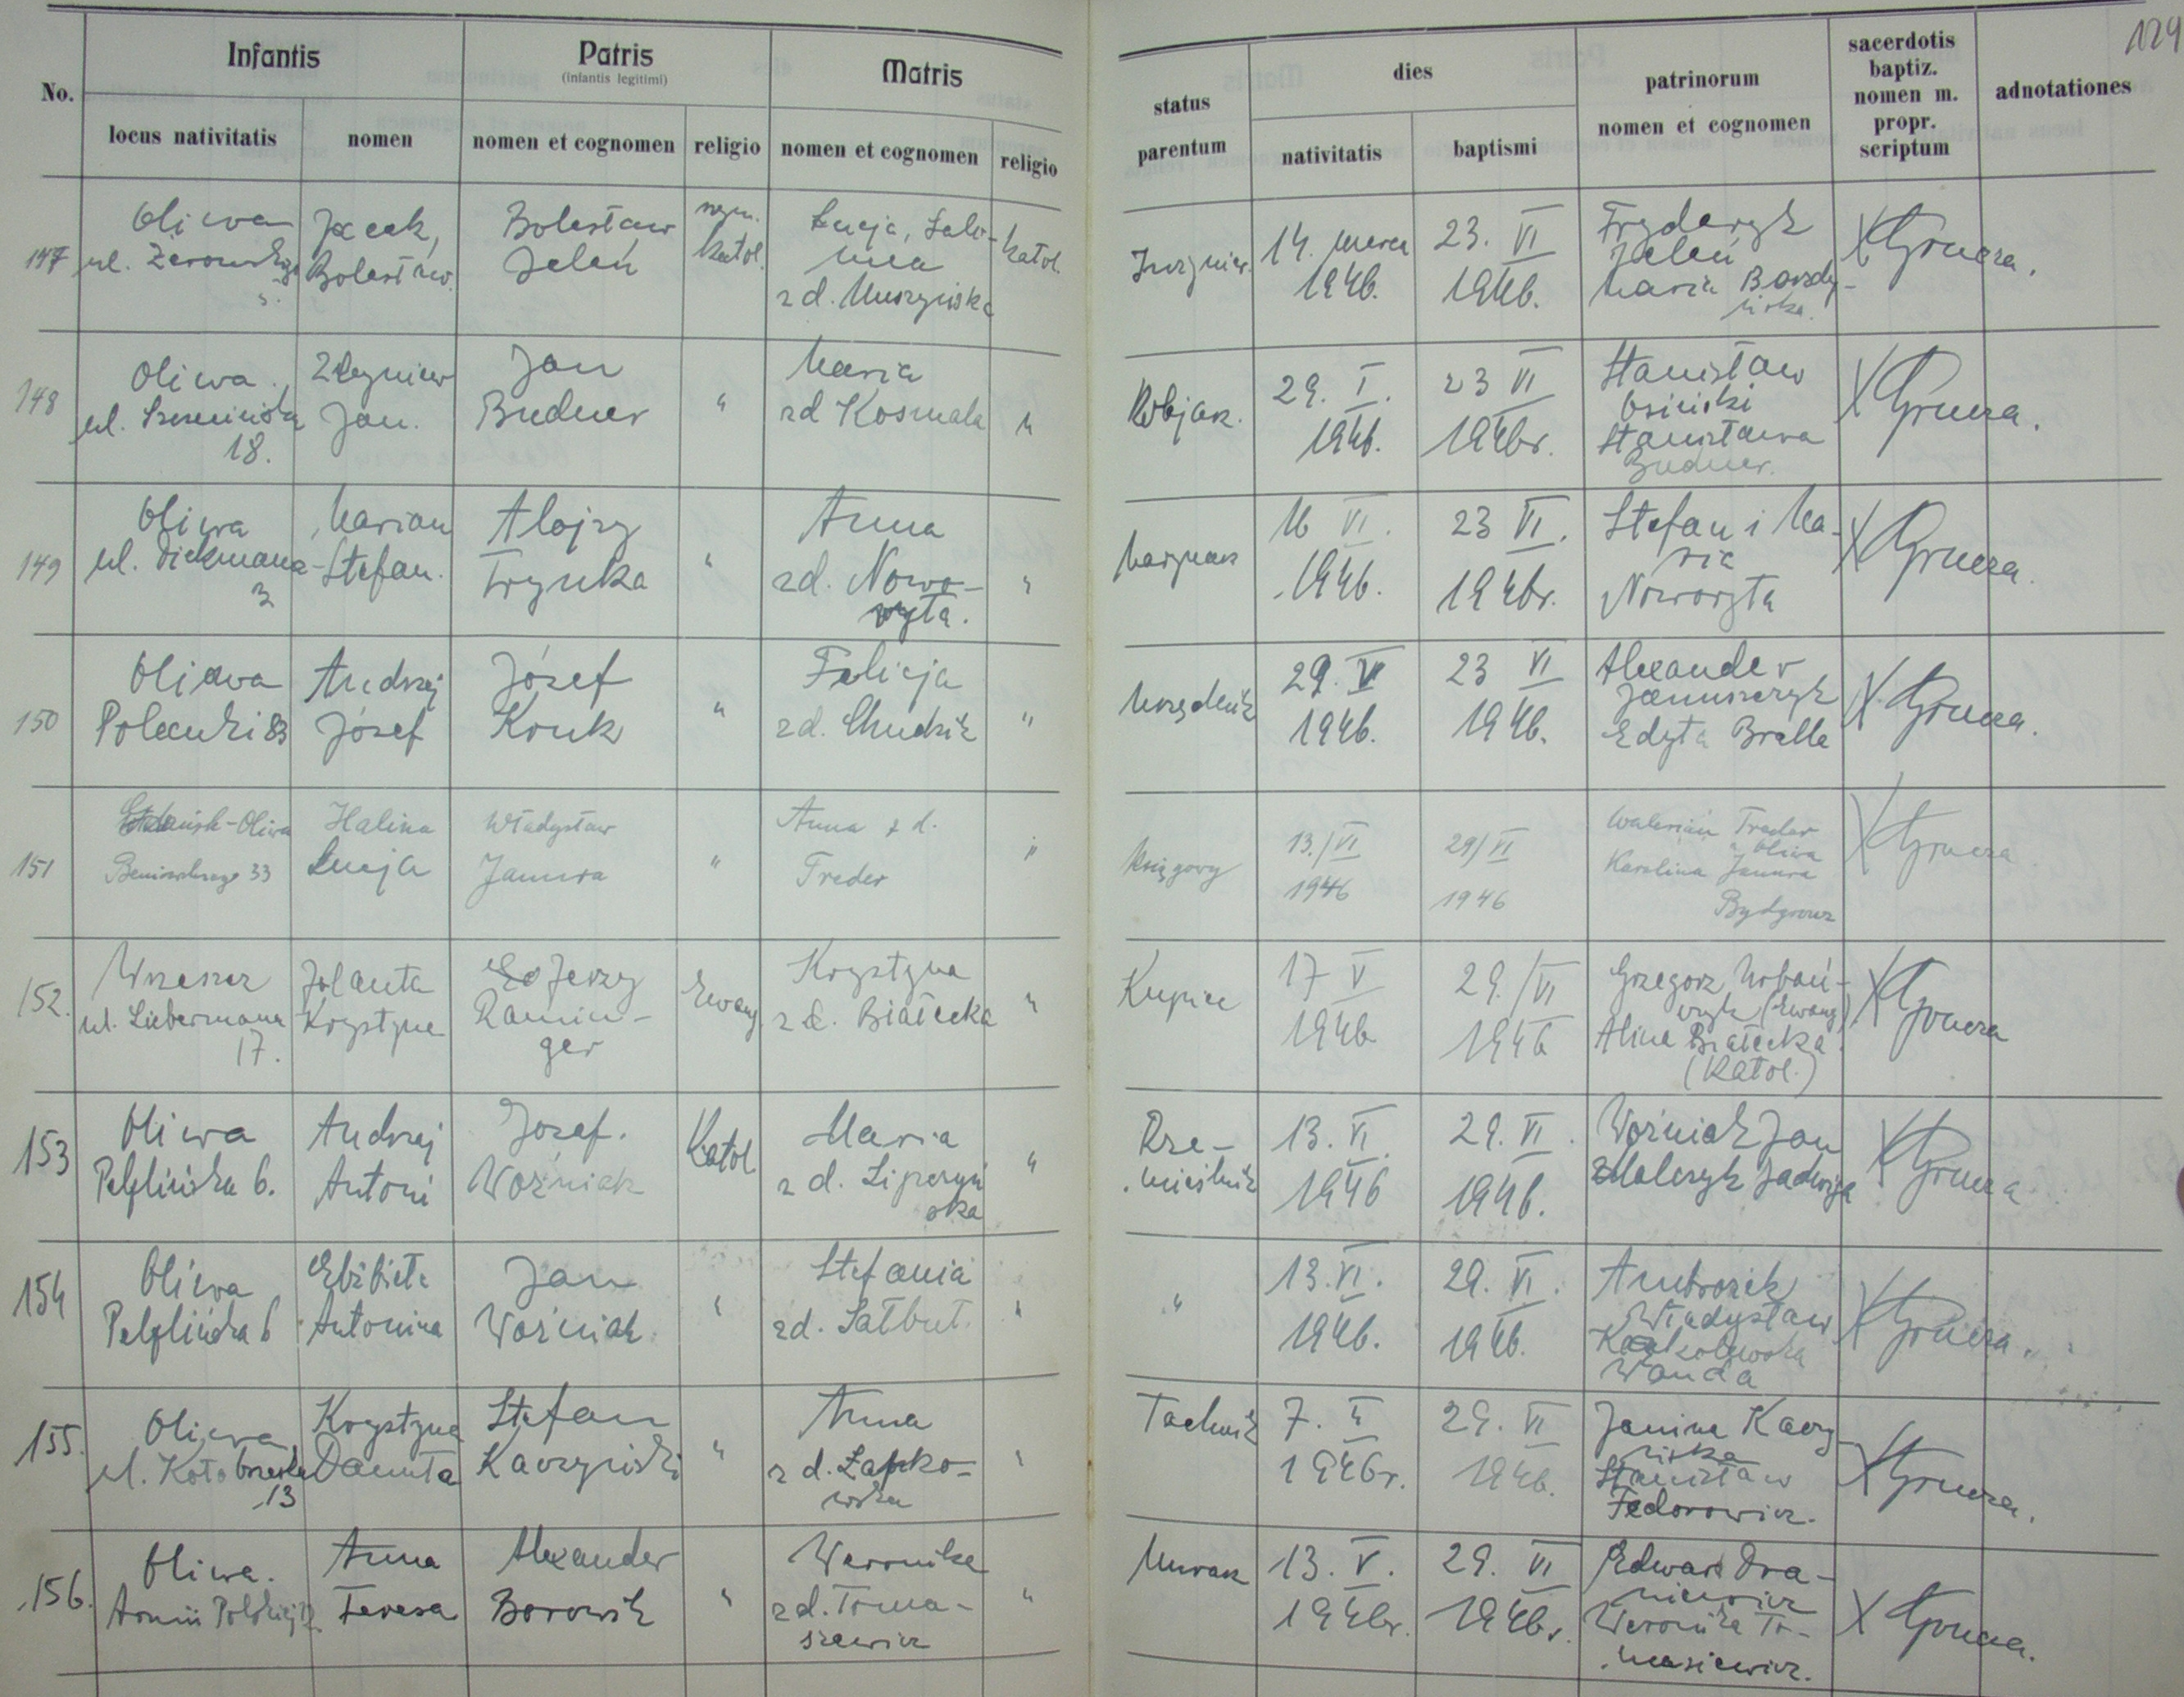 129
Infantis
Patris
(infantis legitimi)
Matris
No.
locus nativitatis
nomen
nomen et cognomen
religio
nomen et cognomen
religio
status
parentum
dies
nativitatis
baptismi
patrinorum
nomen et cognomen
sacerdotis
baptiz.
nomen m.
propr.
scriptum
adnotationes
147
Oliwa
ul. Żeromskiego
Jacek,
Bolesław.
Bolesław
Jeleń
rzym.
katol.
Łucja, Salo-
mea
zd. Muszyńska
katol.
Inżynier.
14. marca
1946.
23. VI
1946.
Fryderyk
Jeleń
Maria
X Grucza.
148
Oliwa.
ul.
18.
Zbigniew
Jan.
Jan
Budner
"
Maria
zd Kosmala
"
29. I.
1946.
23 VI
1946r.
Stanisław
Osiński
Stanisława
Budner.
X Grucza.
149
Oliwa
ul. Dickmana
3
Marian
Stefan.
Alojzy
Trynka
"
Anna
zd. Nowo-
wyta.
"
16 VI.
1946.
23 VI.
1946r.
Stefan i Ma-
ria
X Grucza.
150
Oliwa
Polanki 83
Andrzej
Józef
Józef
Kouk
"
Felicja
zd. Chudzik
"
Urzędnik
29. V
1946.
23 VI
1946.
Alexander
Januszczyk
Edyta Bralle
X Grucza.
151
Gdańsk-Oliwa
33
Halina
Łucja
Władysław
Janura
"
Anna z d.
Treder
"
Księgowy
13./VI
1946
29/VI
1946
Walerian Treder
Oliwa
Karolina Janura
Bydgoszcz
X Grucza
152.
Wrzeszcz
ul. Liebermana
17.
Jolanta
Krystyna
Jerzy
Ramin-
ger
Ewang
Krystyna
zd. Białecka
"
Kupiec
17 V
1946
29./VI
1946
Grzegorz Urbań-
czyk (Ewang)
Alina Białecka.
(Katol.)
X Grucza
153
Oliwa
Pelplińska 6.
Andrzej
Antoni
Józef.
Woźniak
Katol.
Maria
z d. Lipczyń
ska
"
Rze-
mieślnik
13. VI.
1946
29. VI.
1946.
Woźniak Jan
Malczyk Jadwiga
X Grucza
154
Oliwa
Pelplińska 6
Elżbieta
Antonina
Jan
Woźniak
"
Stefania
zd. Sałbut.
"
"
13. VI.
1946.
29. VI.
1946.
Ambrozik
Władysław
Wanda
X Grucza.
155.
Oliwa
ul. Kołobrzeska
13
Krystyna
Danuta
Stefan
Kaczyński
"
Anna
z d. Łapko-
wska
"
Technik
7. II
1946r.
29. VI
1946.
Janina Kaczy
ńska
Stanisław
Fedorowicz.
X Grucza.
156.
Oliwa.
Armii Polskiej
Anna
Teresa
Alexander
Borowik
"
Weronika
zd. Toma-
szewicz
"
Murarz
13. V.
1946r.
29. VI
1946r.
Edward Dra-
niewicz
Weronika To-
masiewicz.
X Grucza.